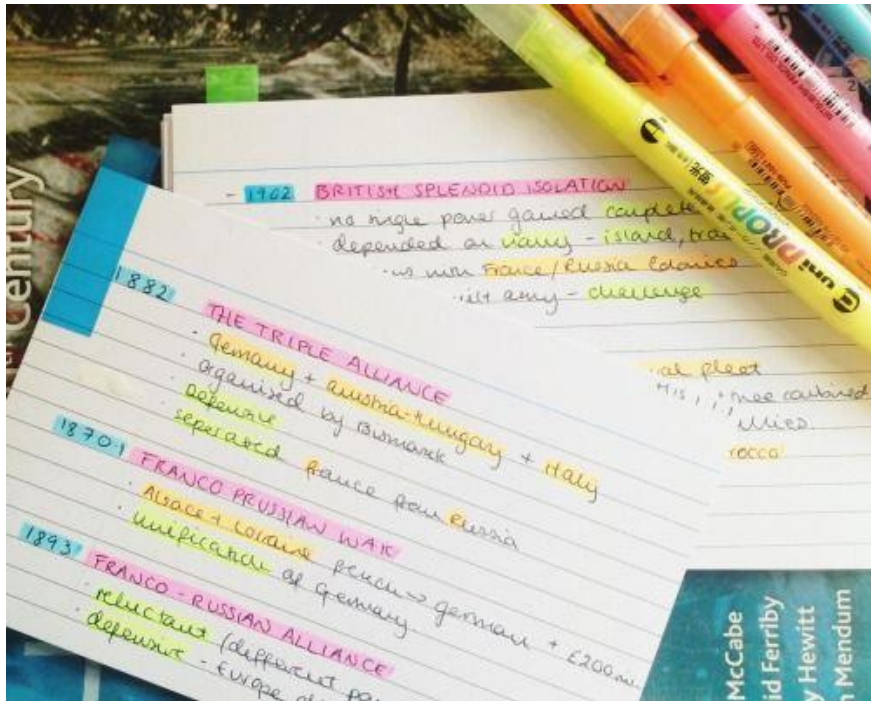 Century
- 1902 BRITISH SPLENDID ISOLATION
· no single power gained complete
· depended on navy - island, tra
France/Russia Colonies
army - challenge
al fleet
combined
rocco
1882
THE TRIPLE ALLIANCE
· Germany + Austria-Hungary + Italy
· organised by Bismark
· Defensive
· seperated france from Russia
1870-1
FRANCO PRUSSIAN WAR
· Alsace + Loraine french → german + £200m
· unification of Germany
1893
FRANCO-RUSSIAN ALLIANCE
· reluctant (different
· defensive - Europe
uni PROPUS
McCabe
id Ferriby
y Hewitt
n Mendum